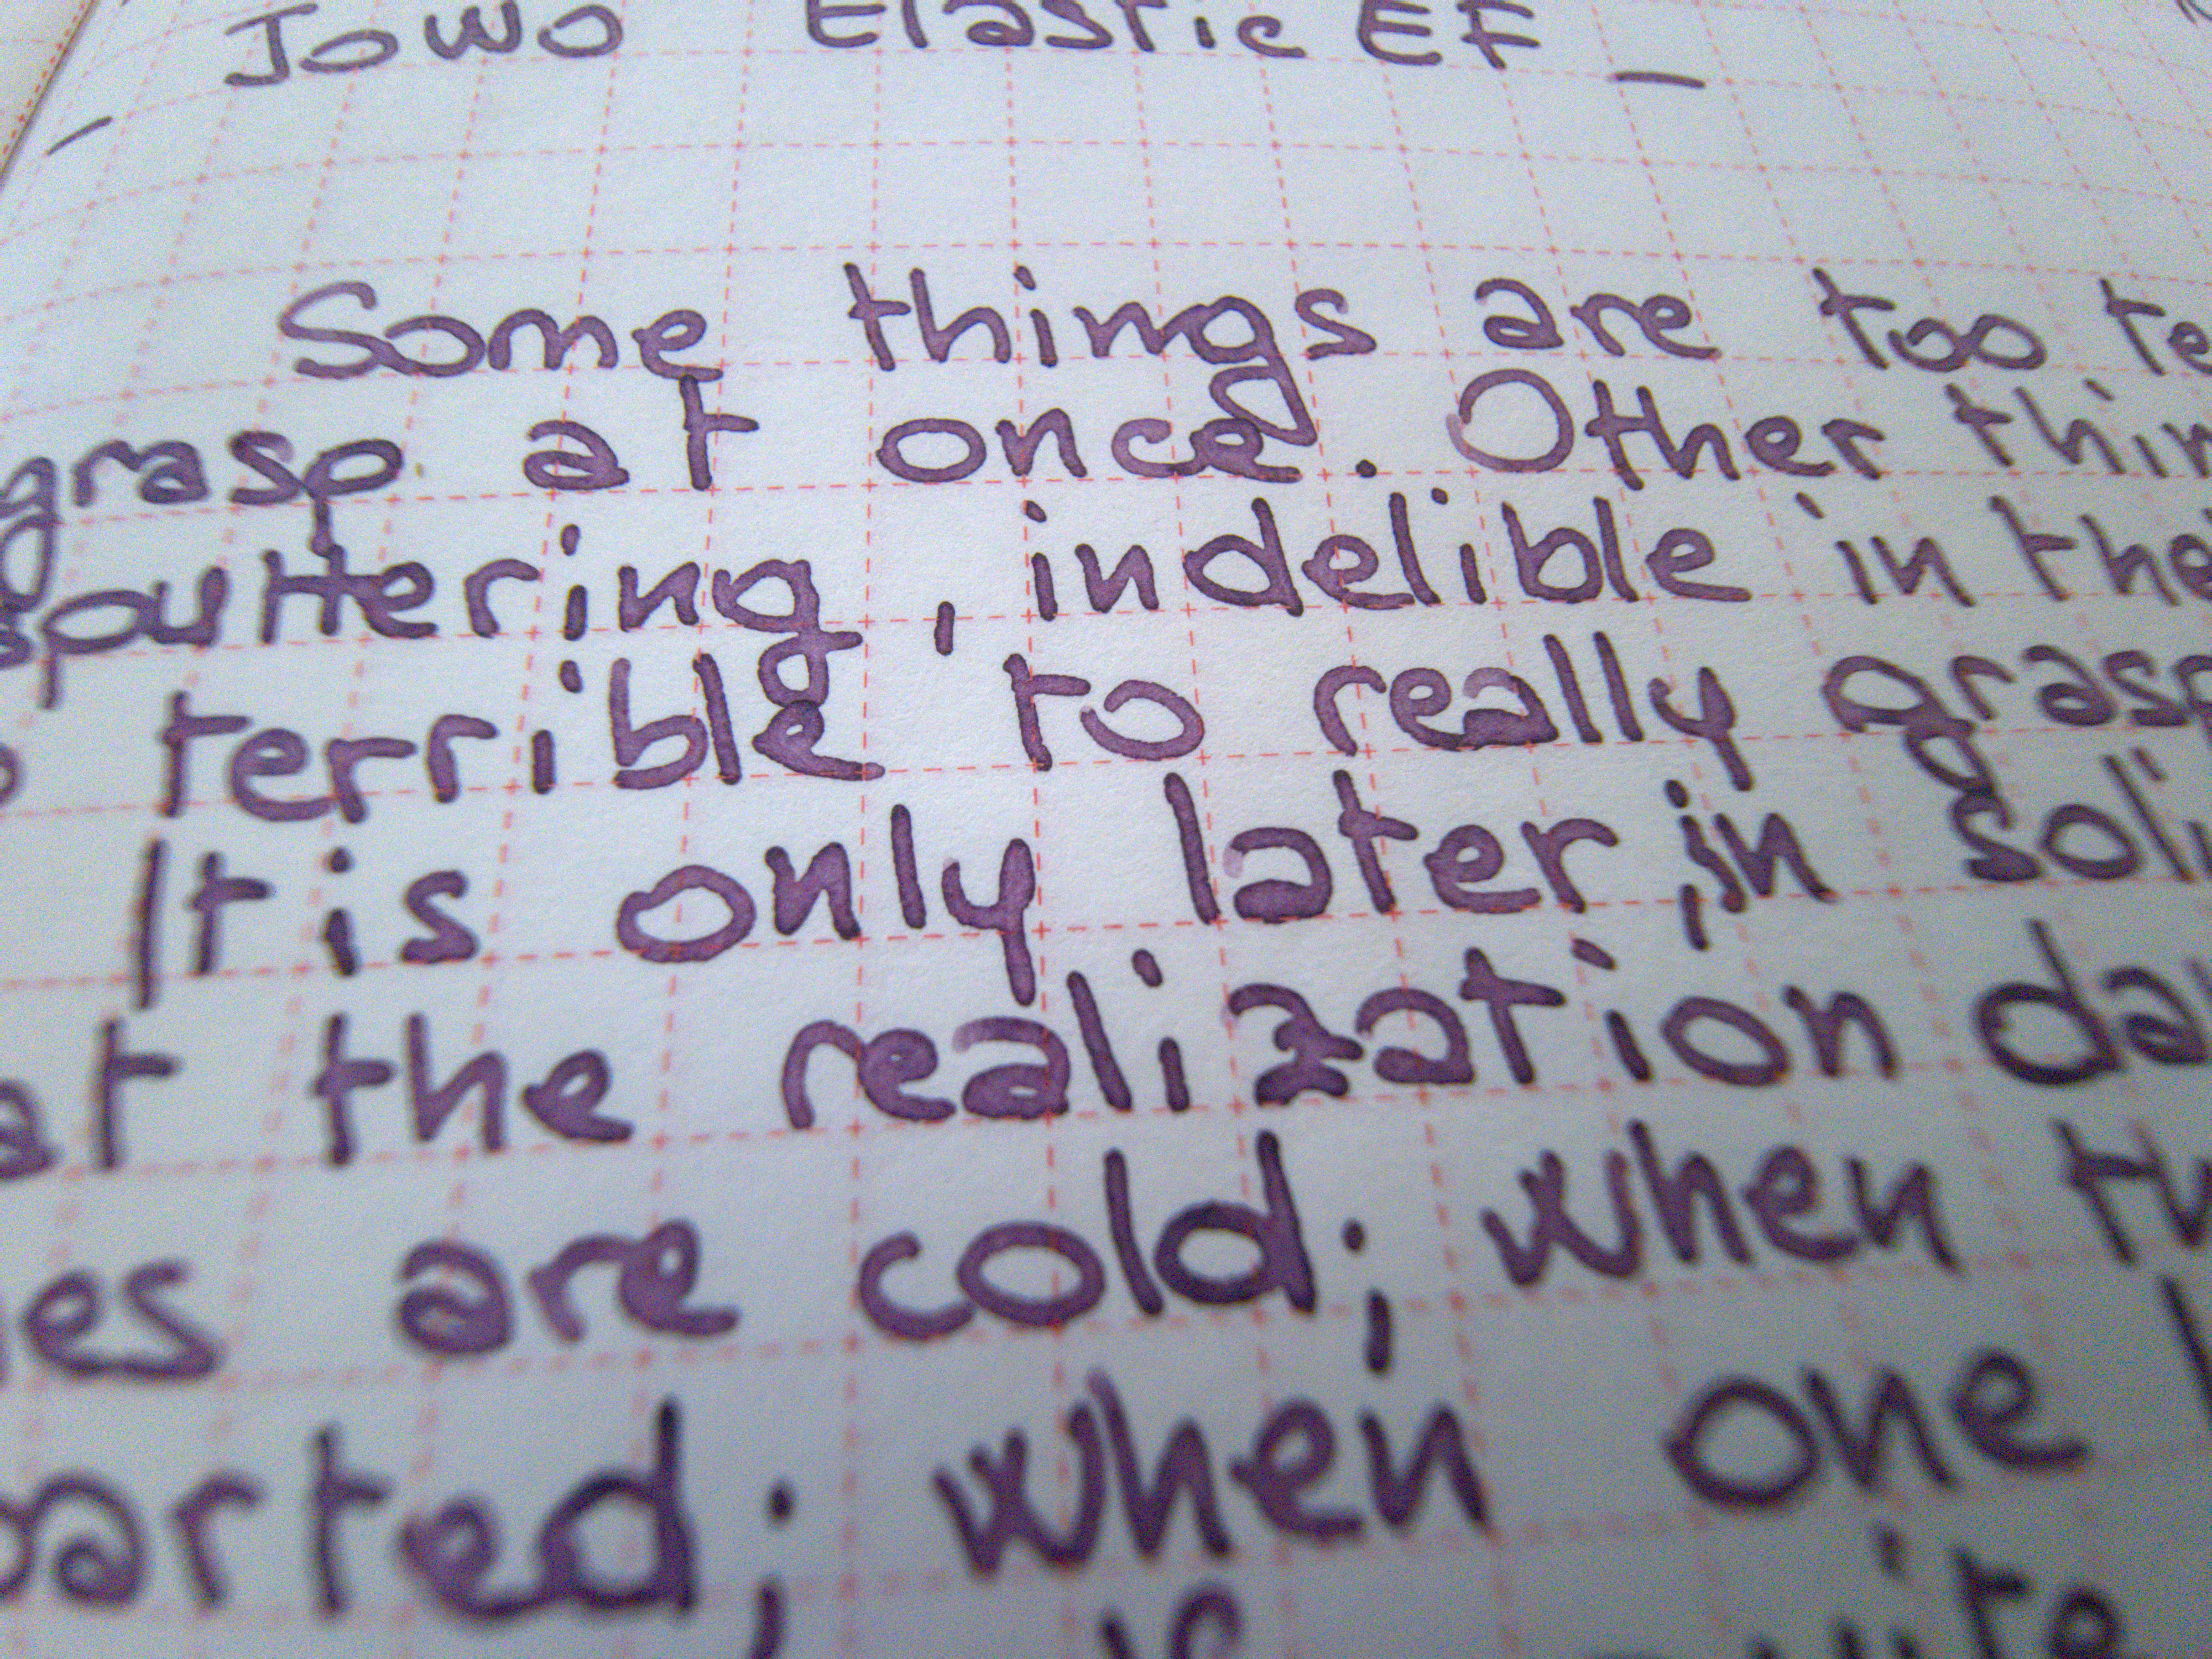 - Jowo Elastic EF -
Some things are too te
grasp at once. Other thin
sputtering, indelible in the
terrible to really grasp
It is only later, in soli
at the realization da
es are cold; when
parted; when one